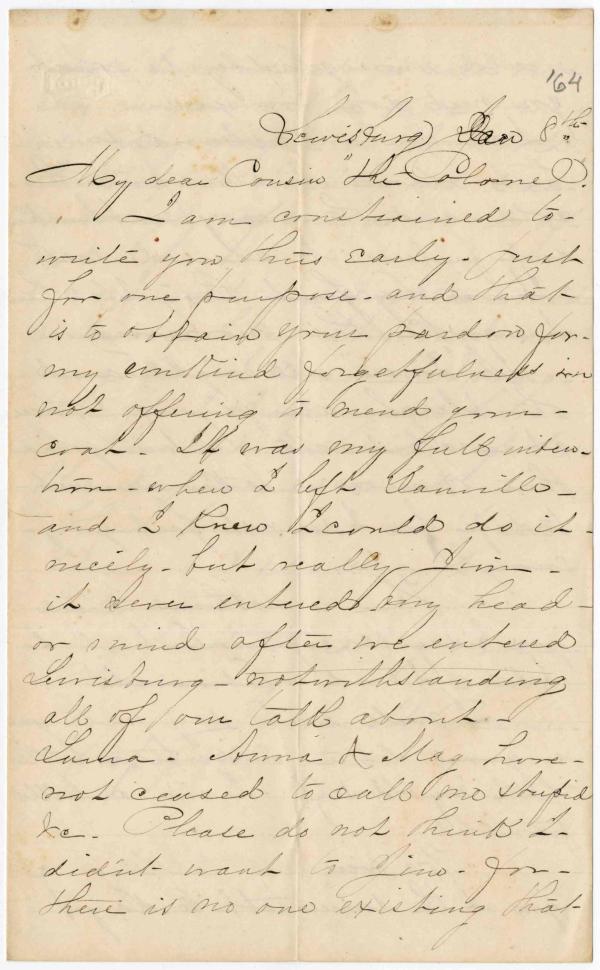 '64
Lewisburg Jan 8th
My dear Cousin "the Colonel".
I am constrained to-
write you thus early- just
for one purpose- and that-
is to obtain your pardon for-
my unkind forgetfulness in
not offering to mend your-
coat- It was my full inten-
tion- when I left Danville-
and I knew I could do it-
nicely- but really Jim-
it never entered my head-
or mind after we entered
Lewisburg- notwithstanding
all of our talk about-
Anna & Mag have-
not ceased to call me stupid
&c- Please do not think I-
didn't want to Jim- for-
there is no one existing that-